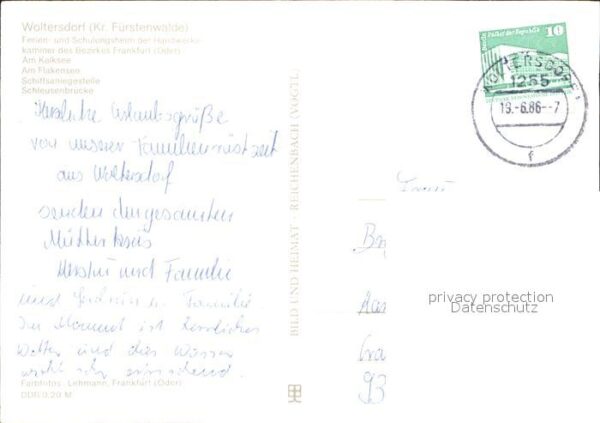 Woltersdorf (Kr. Fürstenwalde)
Ferien- und Schulungsheim der Handwerks-
kammer des Bezirkes Frankfurt (Oder)
Am Kalksee
Am Flakensee
Schiffsanlegestelle
Schleusenbrücke
Herzliche Urlaubsgrüße
von unserer Familienrüstzeit
aus Woltersdorf
senden dem gesamten
Mütterkreis
und Familie
und Familie.
Im Moment ist herrliches
Wetter und das Wasser
sehr erfrischend.
Farbfotos: Lehmann, Frankfurt (Oder)
DDR 0,20 M
BILD UND HEIMAT · REICHENBACH (VOGTL)
Palast der Republik
10
WOLTERSDORF
1255
19.-6.86.--7
f
93
privacy protection
Datenschutz